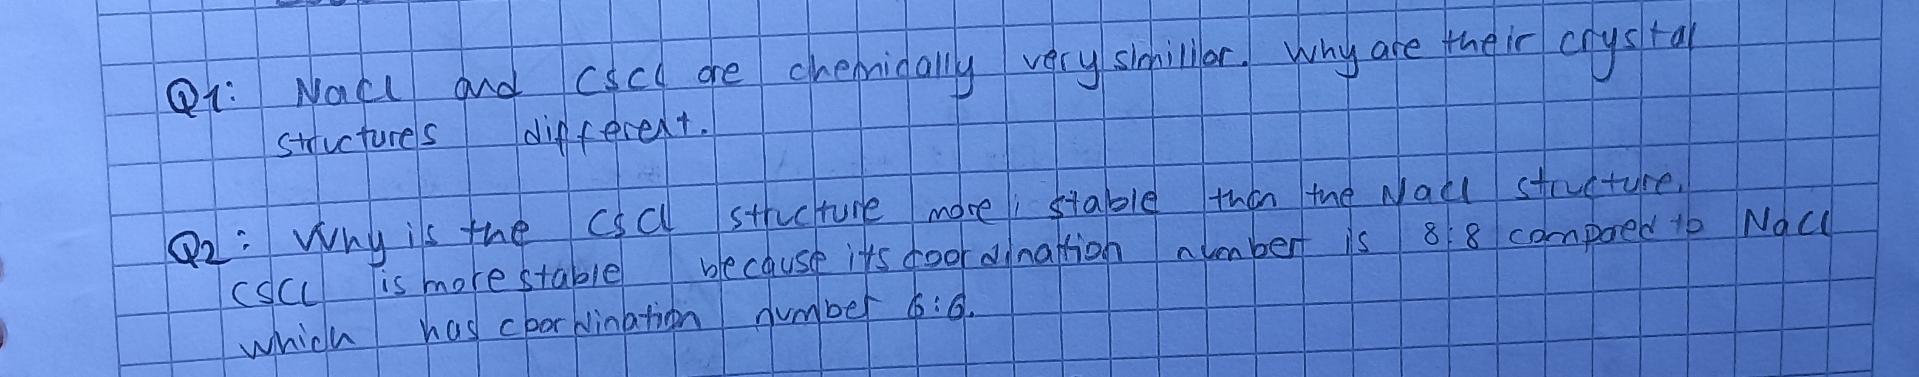 Q1: Nacl and Cscl are chemically very similiar. Why are their crystal
structures different.
Q2: Why is the Cscl structure more stable than the Nacl structure.
CSCL is more stable because its coordination number is 8:8 compared to Nacl
which has coordination number 6:6.